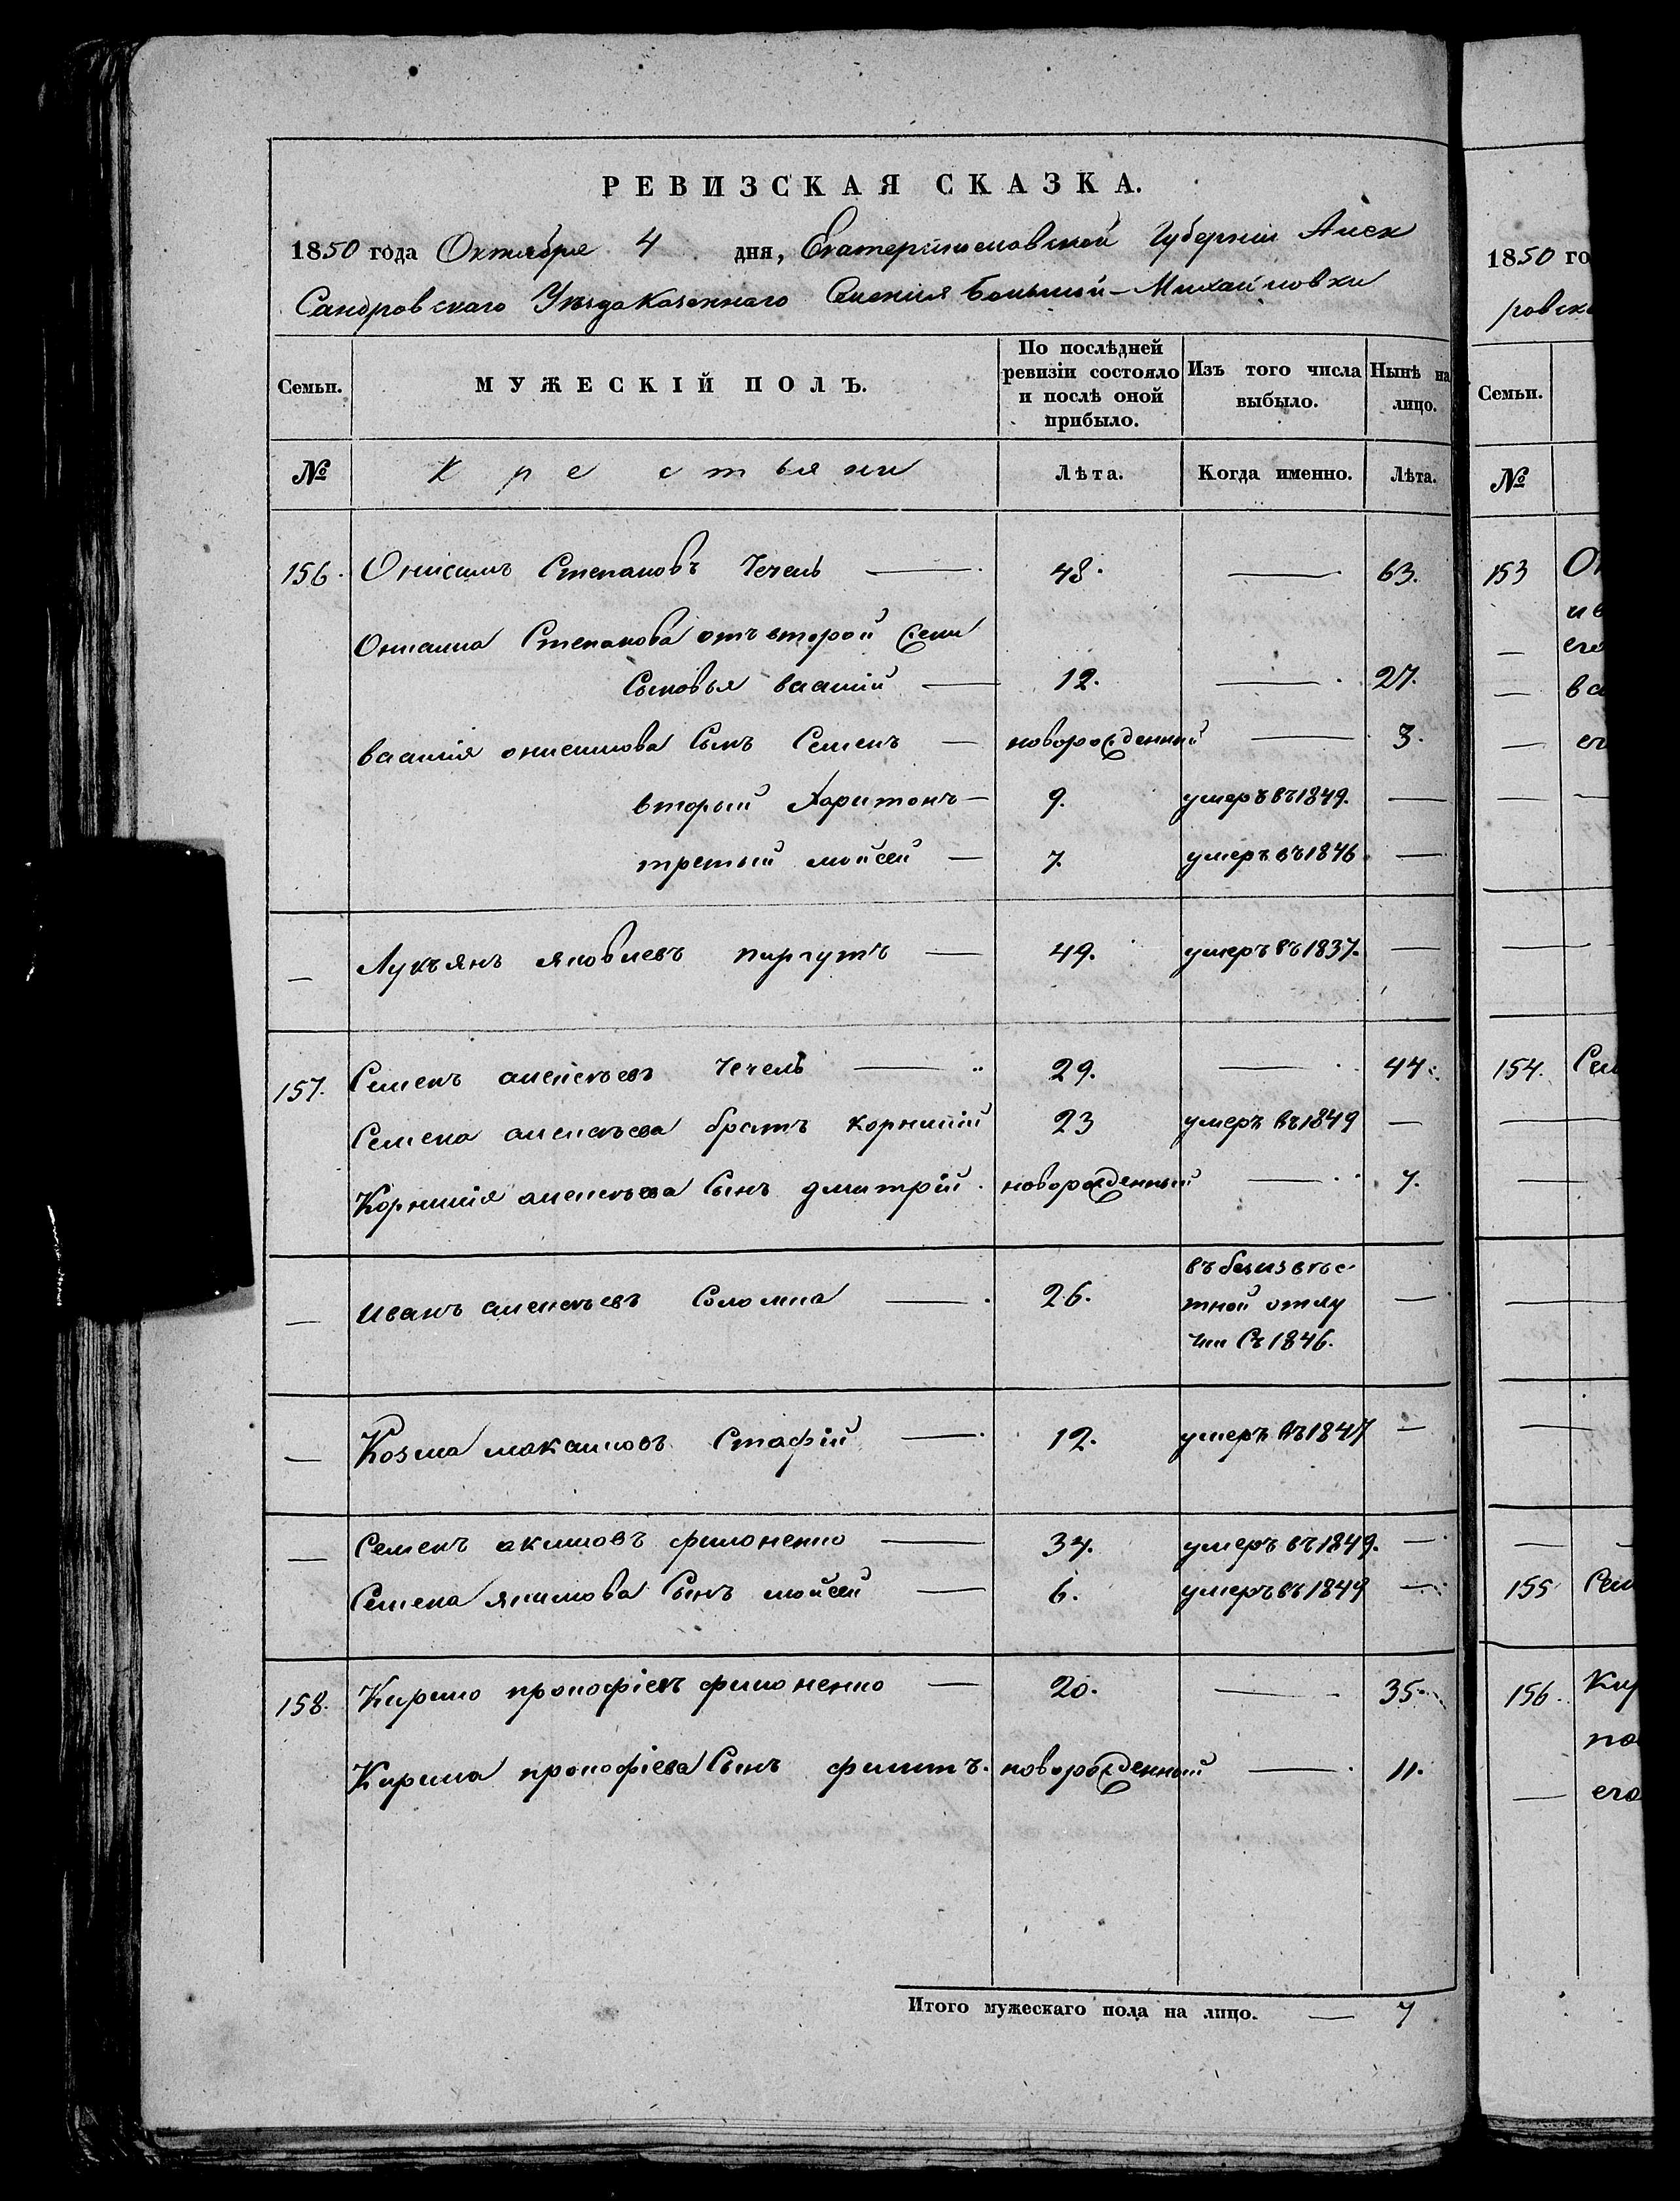 РЕВИЗСКАЯ СКАЗКА.
1850 года Октября 4 дня, Екатеринославской Губерніи Алек
Сандровскаго Уѣзда Казеннаго Селенія Большой-Михайловки
Семьи. МУЖЕСКІЙ ПОЛЪ. По послѣдней ревизіи состояло и послѣ оной прибыло. Изъ того числа выбыло. Нынѣ на лицо.
№ Крестьяни Лѣта. Когда именно. Лѣта.
156. Онисимъ Степановъ Чечель — 48. — 63.
Онисима Степанова отъ второй жени
Сыновья василій — 12. — 27.
василія онисимова Сынъ Семенъ — новорожденный — 3.
вторый Харитонъ — 9. умеръ въ 1849. —
третый мойсей — 7. умеръ въ 1846 —
— Лукъянъ яковлевъ пиргутъ — 49. умеръ въ 1837. —
157. Семенъ алексѣевъ Чечель — 29. — 44.
Семена алексѣева братъ корнилій 23 умеръ въ 1849 —
Корнилія алексѣева Сынъ дмитрій. новорожденный — 7.
— иванъ алексѣевъ Соломка — 26. въ безизвѣс-
тной отлу
чки Съ 1846. —
— Козма максимовъ Стафій — 12. умеръ въ 1847 —
— Семенъ акимовъ филоненко — 37. умеръ въ 1849. —
Семена якимова Сынъ мойсей — 6. умеръ въ 1849 —
158. Кирило прокофіевъ филоненко — 20. — 35.
Кирила прокофіева Сынъ филипъ. новорожденный — 11.
Итого мужескаго пола на лицо. — 7
1850 го
ровска
Семьи.
№
153
154. Сем
155 Сем
156. Кир
его